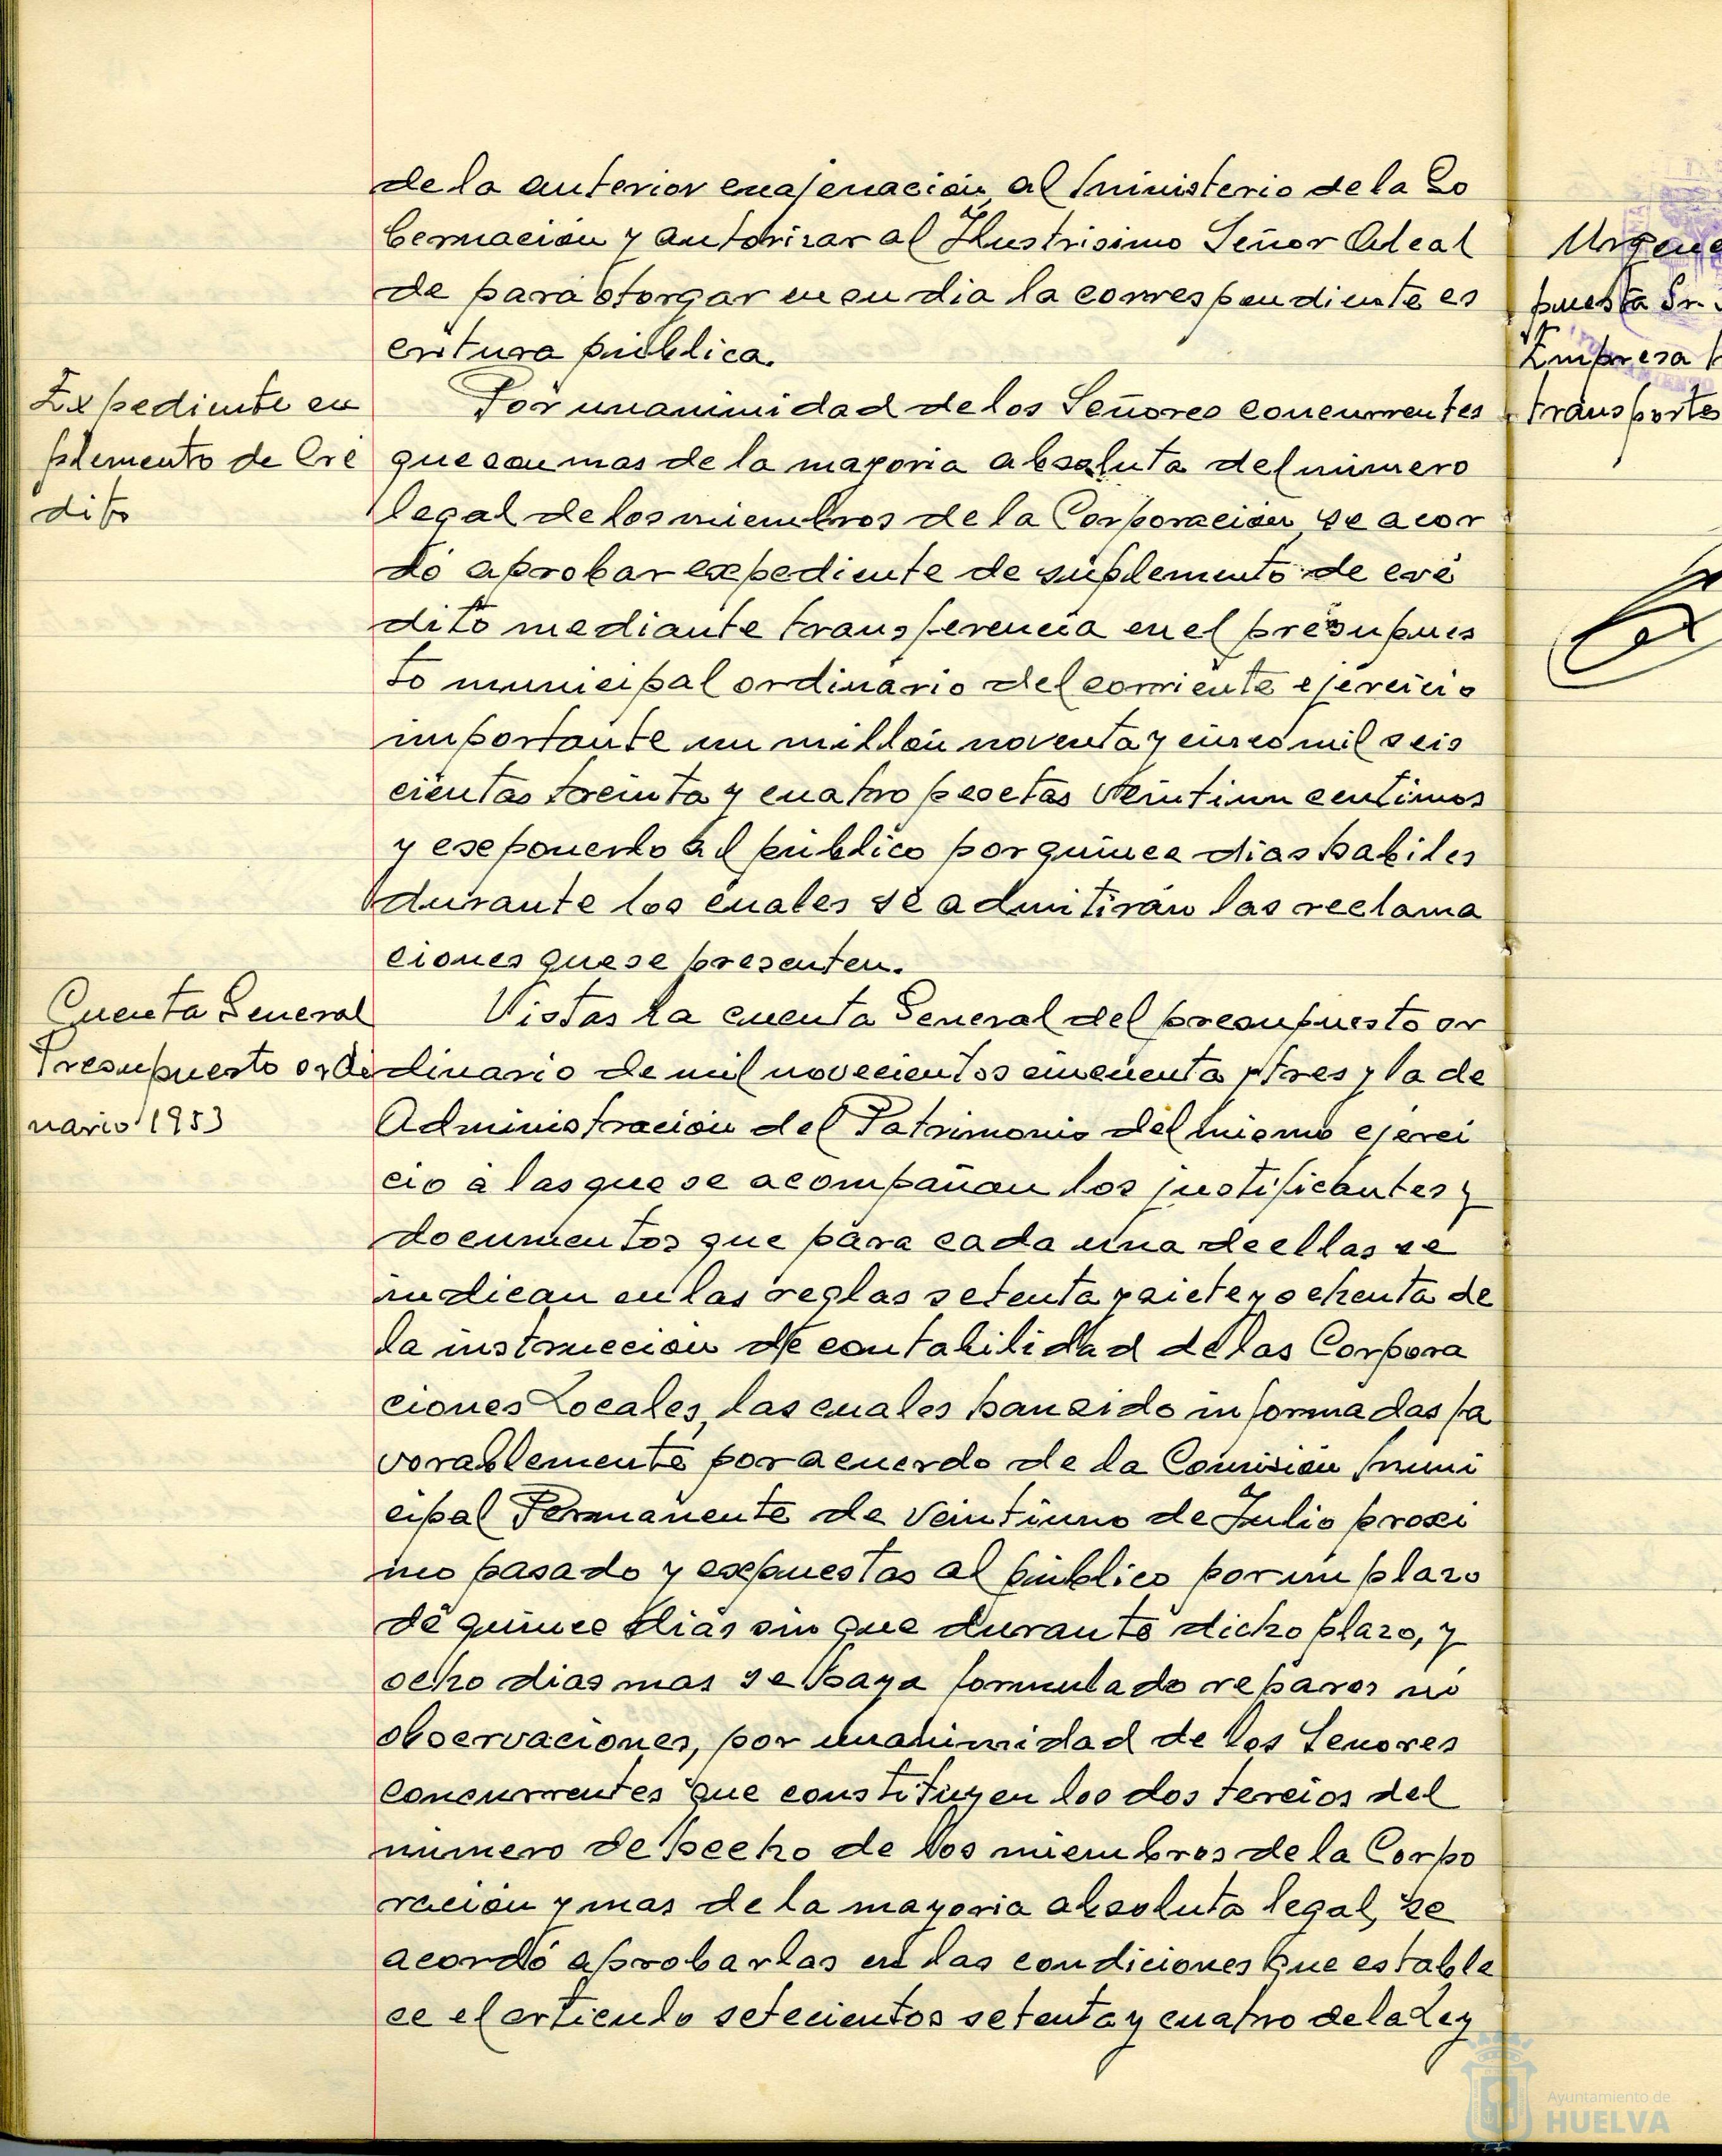 de la anterior enajenación, al Ministerio de la Go
bernación y autorizar al Ilustrisimo Señor Alcal
de para otorgar en su dia la correspondiente es
critura pública.
Expediente su
plemento de Cré
dito
Por unanimidad de los Señores concurrentes
que son mas de la mayoria absoluta del número
legal de los miembros de la Corporación, se acor
dó aprobar expediente de suplemento de cré
dito mediante transferencia en el presupues
to municipal ordinario del corriente ejercicio
importante un millón noventa y cinco mil seis
cientas treinta y cuatro pesetas veintiun centimos
y exponerlo al público por quince dias habiles
durante los cuales se admitirán las reclama
ciones que se presenten.
Cuenta General
Presupuesto ordi
nario 1953
Vistas la cuenta General del presupuesto or
dinario de mil novecientos cincuenta y tres y la de
Administración del Patrimonio del mismo ejerci
cio a las que se acompañan los justificantes y
documentos que para cada una de ellas se
indican en las reglas setenta y siete y ochenta de
la instrucción de contabilidad de las Corpora
ciones Locales, las cuales han sido informadas fa
vorablemente por acuerdo de la Comisión Muni
cipal Permanente de veintiuno de Julio proxi
mo pasado y expuestas al público por un plazo
de quince dias sin que durante dicho plazo, y
ocho dias mas se haya formulado reparos ni
observaciones, por unanimidad de los Senores
concurrentes que constituyen los dos tercios del
número de hecho de los miembros de la Corpo
ración y mas de la mayoria absoluta legal, se
acordó aprobarlas en las condiciones que estable
ce el articulo setecientos setenta y cuatro de la Ley
Urgenc
puesta Sr.
Empresa
transportes
Ayuntamiento de
HUELVA